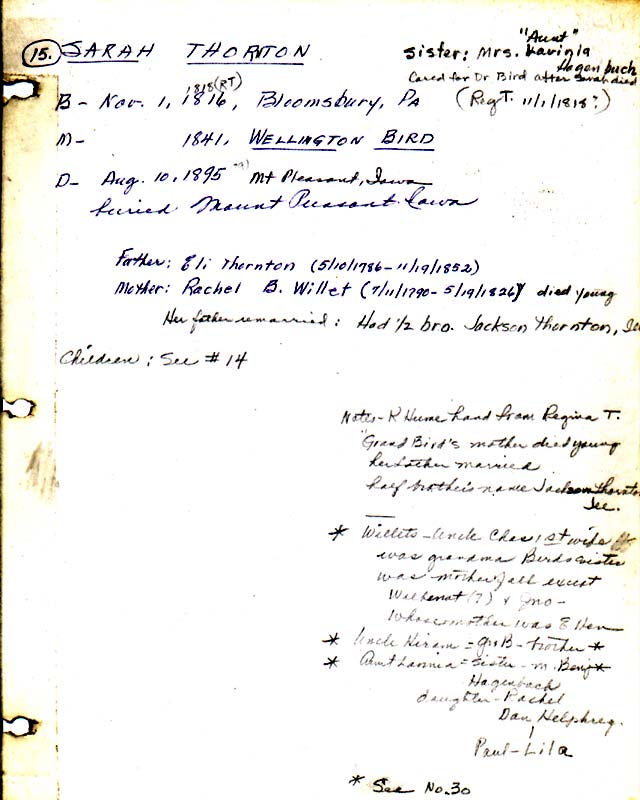 15. SARAH THORNTON
Sister: Mrs. "Aunt" Lavinia
Hagenbuch
Cared for Dr Bird after Sarah died
1818 (RT)
B- Nov. 1, 1816, Bloomsbury, PA (Reg T. 11/1/1818?)
M- 1841, WELLINGTON BIRD
D- Aug. 10, 1895 Mt Pleasant, Iowa
buried Mount Pleasant Iowa
Father: Eli Thornton (5/10/1786-11/19/1852)
Mother: Rachel B. Willet (7/11/1790-5/19/1826) died young
Her father remarried: Had 1/2 bro. Jackson Thornton,
Children: See #14
Notes-K Hume hand from Regina T.
"Grand Bird's mother died young
her father married
half brother's name Jackson Thornton
* Willets-Uncle Chas 1st wife
was grandma Birds sister
was mother of all except
(?) & Jno-
whose mother was E
* Uncle Hiram = GrB-brother *
* Aunt = Sister-m. Benj *
Hagenbach
daughter-Rachel
Dan Helphrey.
Paul-Lila
* See No. 30